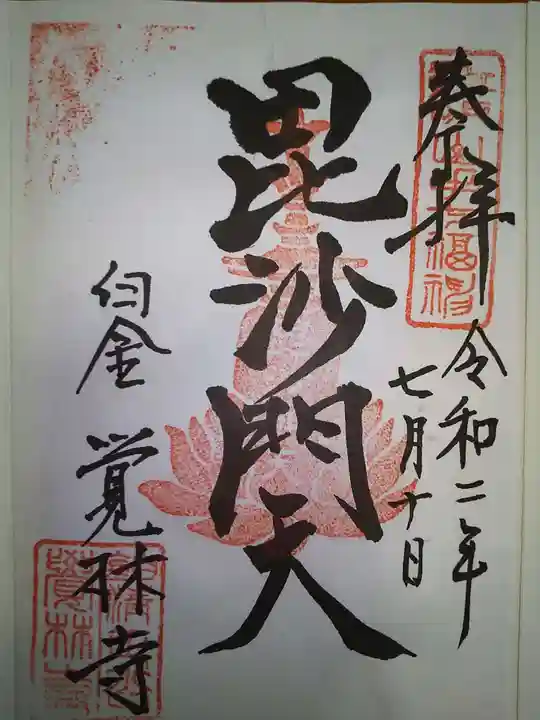 奉拝
令和二年
七月十日
毘沙門天
白金 覚林寺